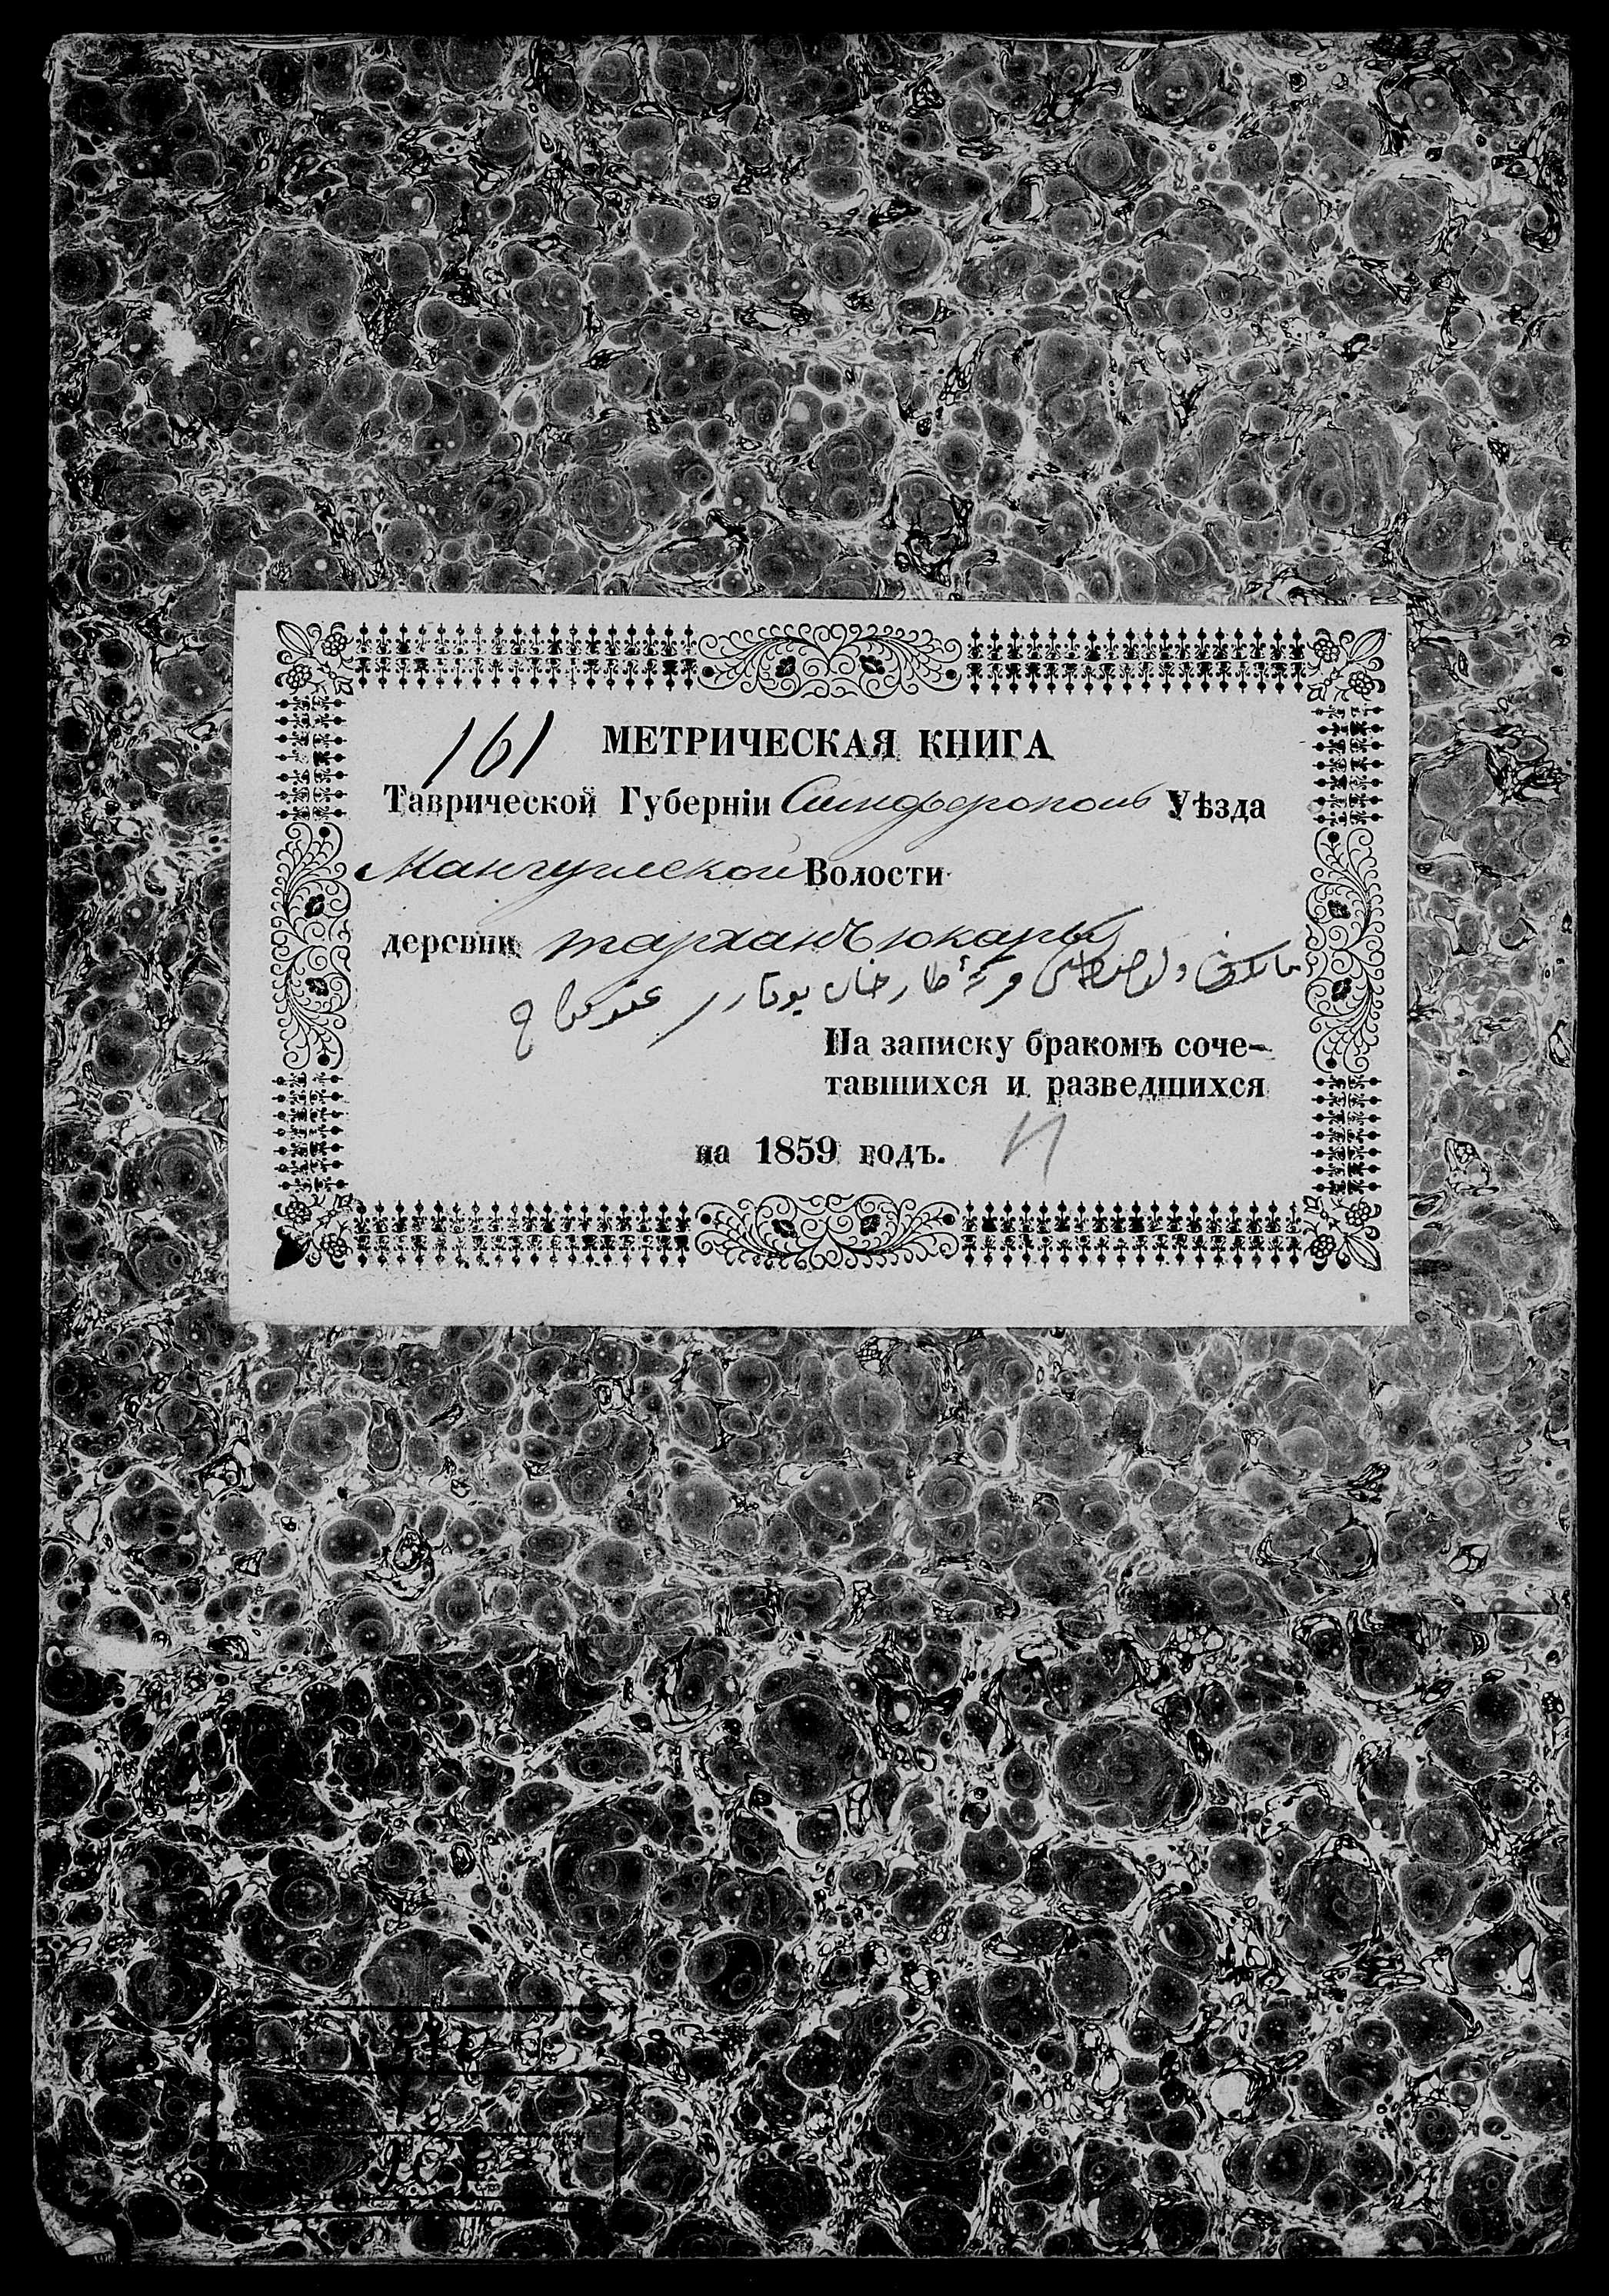 161 МЕТРИЧЕСКАЯ КНИГА
Таврической Губерніи Симферополь Уѣзда
Мангушской Волости
деревни тарханъ юкары
قرﯾﮥ طارخان يوقارى عقد نكاح
На записку бракомъ соче-
тавшихся и разведшихся
на 1859 годъ.